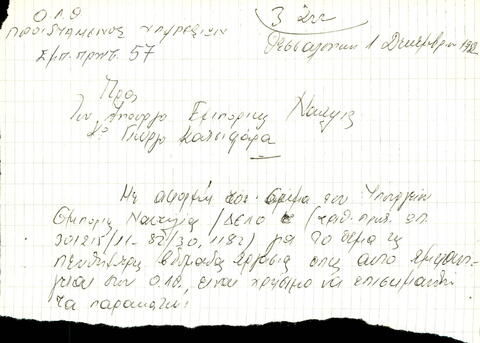 Ο.Λ.Θ
ΠΡΟΪΣΤΑΜΕΝΟΣ ΥΠΗΡΕΣΙΩΝ
ΕΜΠ. ΠΡΩΤ. 57
Θεσσαλονίκη 1 Δεκεμβρίου 1982
Προς
Τον Υπουργό Εμπορικής Ναυτιλίας
Κο Γιώργο Κατσιφάρα
Με αφορμή το έγγραφο του Υπουργείου
Εμπορικής Ναυτιλίας / ΔΕΛΟ / αριθ. πρωτ.
301215/11-82/30.11.82) για το θέμα της
πενθήμερης εβδομάδας εργασίας στις
του ΟΛΘ, είναι χρήσιμο να επισημανθούν
τα παρακάτω: